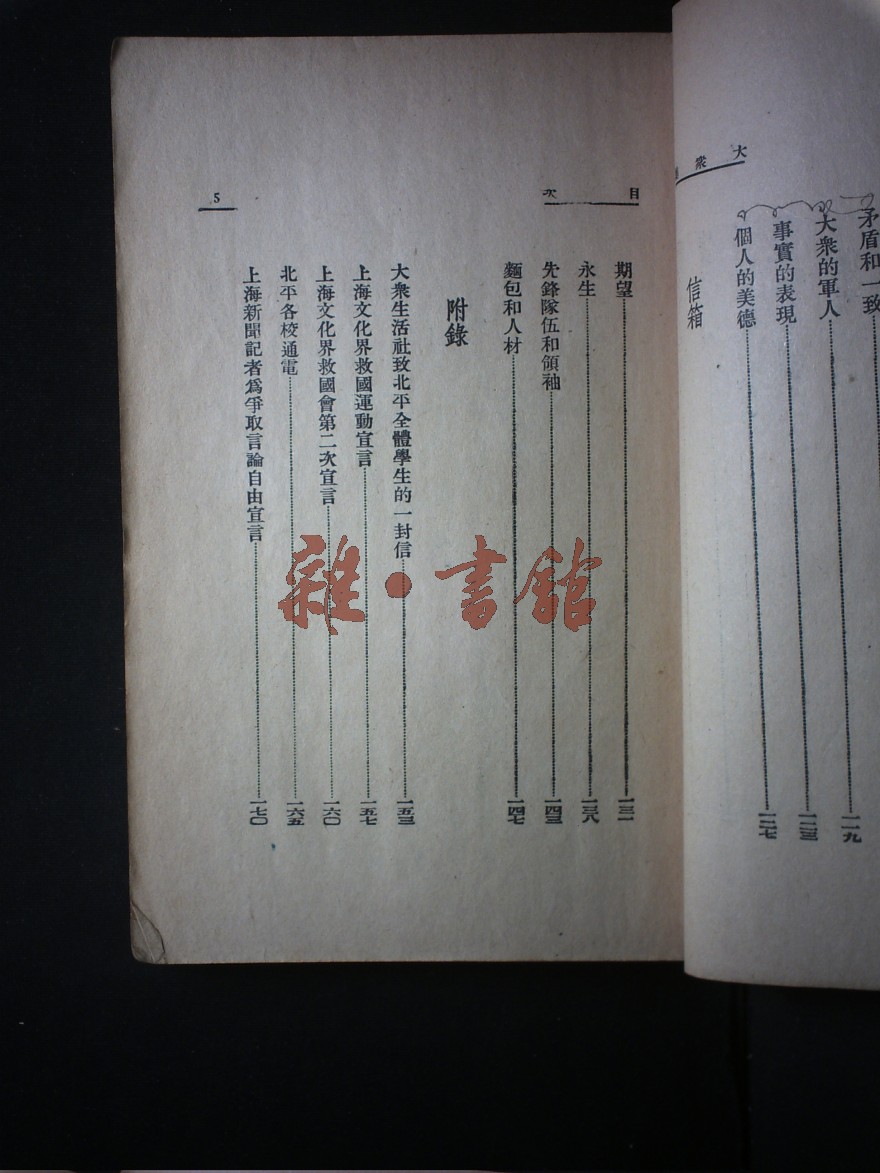 大衆
矛盾和一致
大衆的軍人 一一九
事實的表現 一二三
個人的美德 一二七
信箱
目次
期望 一三一
永生 一三八
先鋒隊伍和領袖 一四三
麵包和人材 一四七
附錄
大衆生活社致北平全體學生的一封信 一五三
上海文化界救國運動宣言 一五七
上海文化界救國會第二次宣言 一六〇
北平各校通電 一六五
上海新聞記者爲爭取言論自由宣言 一七〇
5
雜·書館